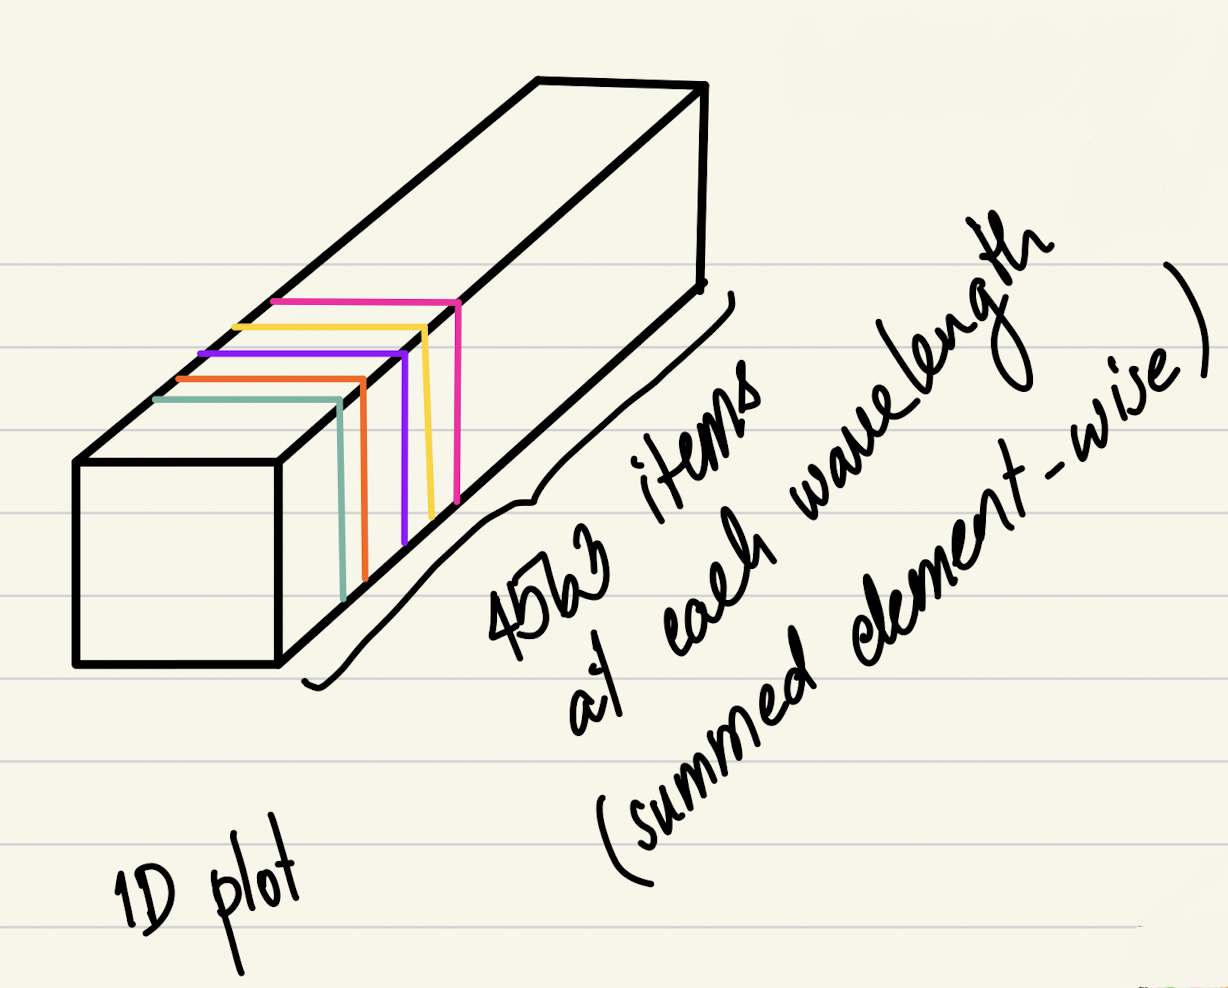 4563 items
at each wavelength
(summed element-wise)
1D plot